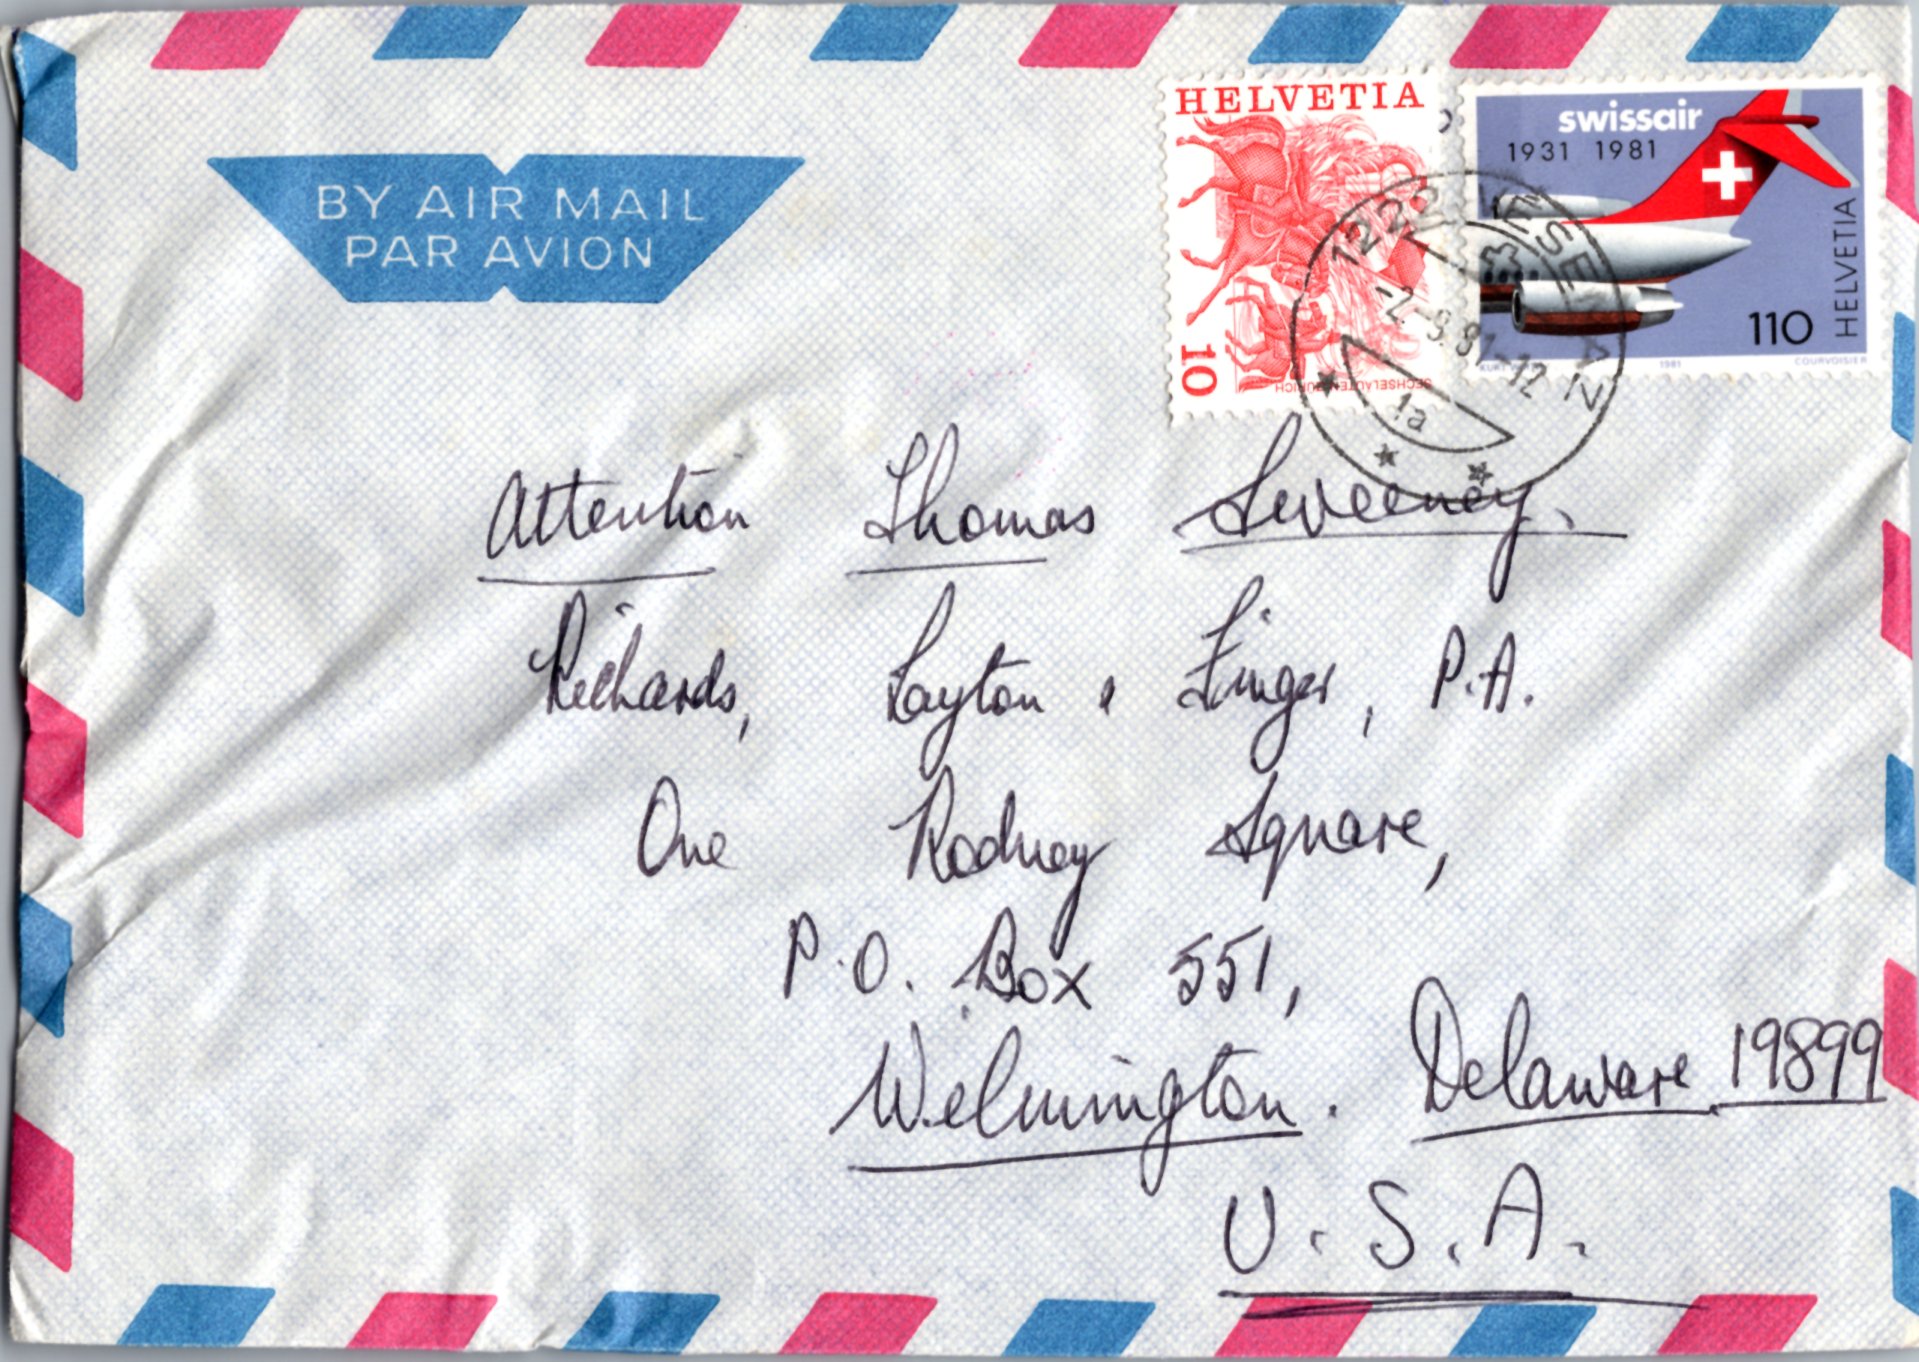 BY AIR MAIL
PAR AVION
HELVETIA
10
SECHSELÄUTEN ZÜRICH
swissair
1931 1981
HELVETIA
110
1981
COURVOISIER
1222 VESENAZ
-2.-9.81-12
1a
Attention Thomas Sweeney.
Richards, Layton & Finger, P.A.
One Rodney Square,
P.O. Box 551,
Welmington. Delaware 19899
U.S.A.